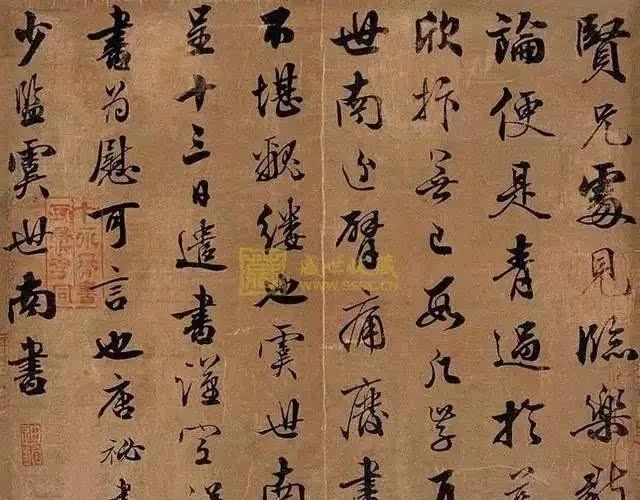 賢兄處見臨樂毅
論便是青過於
欣抃無已數凡學
世南近臂痛廢書
不堪覼縷也虞世南
呈十三日遣書謹空
書為慰可言也唐祕書
少監虞世南書
盛世收藏
WWW.SSSC.CN